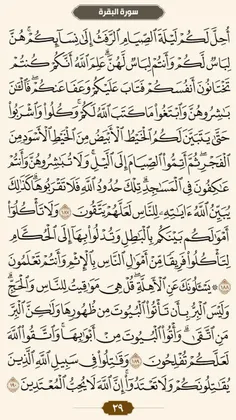 سورة البقرة
أُحِلَّ لَكُمْ لَيْلَةَ ٱلصِّيَامِ ٱلرَّفَثُ إِلَىٰ نِسَآئِكُمْ ۚ هُنَّ
لِبَاسٌ لَّكُمْ وَأَنتُمْ لِبَاسٌ لَّهُنَّ ۗ عَلِمَ ٱللَّهُ أَنَّكُمْ كُنتُمْ
تَخْتَانُونَ أَنفُسَكُمْ فَتَابَ عَلَيْكُمْ وَعَفَا عَنكُمْ ۖ فَٱلْـَٰٔنَ
بَـٰشِرُوهُنَّ وَٱبْتَغُوا۟ مَا كَتَبَ ٱللَّهُ لَكُمْ ۚ وَكُلُوا۟ وَٱشْرَبُوا۟
حَتَّىٰ يَتَبَيَّنَ لَكُمُ ٱلْخَيْطُ ٱلْأَبْيَضُ مِنَ ٱلْخَيْطِ ٱلْأَسْوَدِ مِنَ
ٱلْفَجْرِ ۖ ثُمَّ أَتِمُّوا۟ ٱلصِّيَامَ إِلَى ٱلَّيْلِ ۚ وَلَا تُبَـٰشِرُوهُنَّ وَأَنتُمْ
عَـٰكِفُونَ فِى ٱلْمَسَـٰجِدِ ۗ تِلْكَ حُدُودُ ٱللَّهِ فَلَا تَقْرَبُوهَا ۗ كَذَٰلِكَ
يُبَيِّنُ ٱللَّهُ ءَايَـٰتِهِۦ لِلنَّاسِ لَعَلَّهُمْ يَتَّقُونَ ١٨٧ وَلَا تَأْكُلُوٓا۟
أَمْوَٰلَكُم بَيْنَكُم بِٱلْبَـٰطِلِ وَتُدْلُوا۟ بِهَآ إِلَى ٱلْحُكَّامِ
لِتَأْكُلُوا۟ فَرِيقًا مِّنْ أَمْوَٰلِ ٱلنَّاسِ بِٱلْإِثْمِ وَأَنتُمْ تَعْلَمُونَ
١٨٨ ۞ يَسْـَٔلُونَكَ عَنِ ٱلْأَهِلَّةِ ۖ قُلْ هِىَ مَوَٰقِيتُ لِلنَّاسِ وَٱلْحَجِّ ۗ
وَلَيْسَ ٱلْبِرُّ بِأَن تَأْتُوا۟ ٱلْبُيُوتَ مِن ظُهُورِهَا وَلَـٰكِنَّ ٱلْبِرَّ
مَنِ ٱتَّقَىٰ ۗ وَأْتُوا۟ ٱلْبُيُوتَ مِنْ أَبْوَٰبِهَا ۚ وَٱتَّقُوا۟ ٱللَّهَ
لَعَلَّكُمْ تُفْلِحُونَ ١٨٩ وَقَـٰتِلُوا۟ فِى سَبِيلِ ٱللَّهِ ٱلَّذِينَ
يُقَـٰتِلُونَكُمْ وَلَا تَعْتَدُوٓا۟ ۚ إِنَّ ٱللَّهَ لَا يُحِبُّ ٱلْمُعْتَدِينَ ١٩٠
٢٩